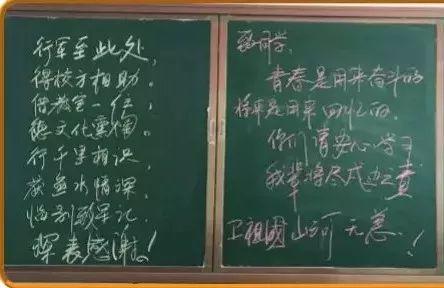 行军至此处,
得校方相助。
借教室一位,
感文化熏陶。
行千里相识,
鱼水情深,
临别致笔记,
深表感谢!
致同学:
青春是用来奋斗的
将来是用来回忆的.
你们请安心学习
我辈将尽戍边之责
卫祖国山河无恙.!